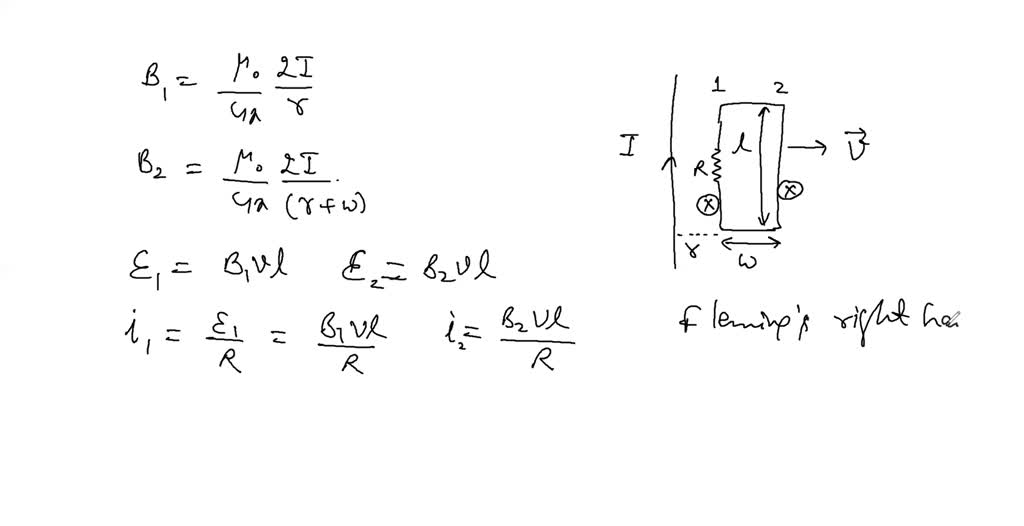 B₁ = μ₀/4π 2I/r
B₂ = μ₀/4π 2I/(r+w)
ε₁ = B₁vl ε₂ = B₂vl
i₁ = ε₁/R = B₁vl/R i₂ = B₂vl/R
1 2
I R l v⃗
x x
r w
Fleming's right ha